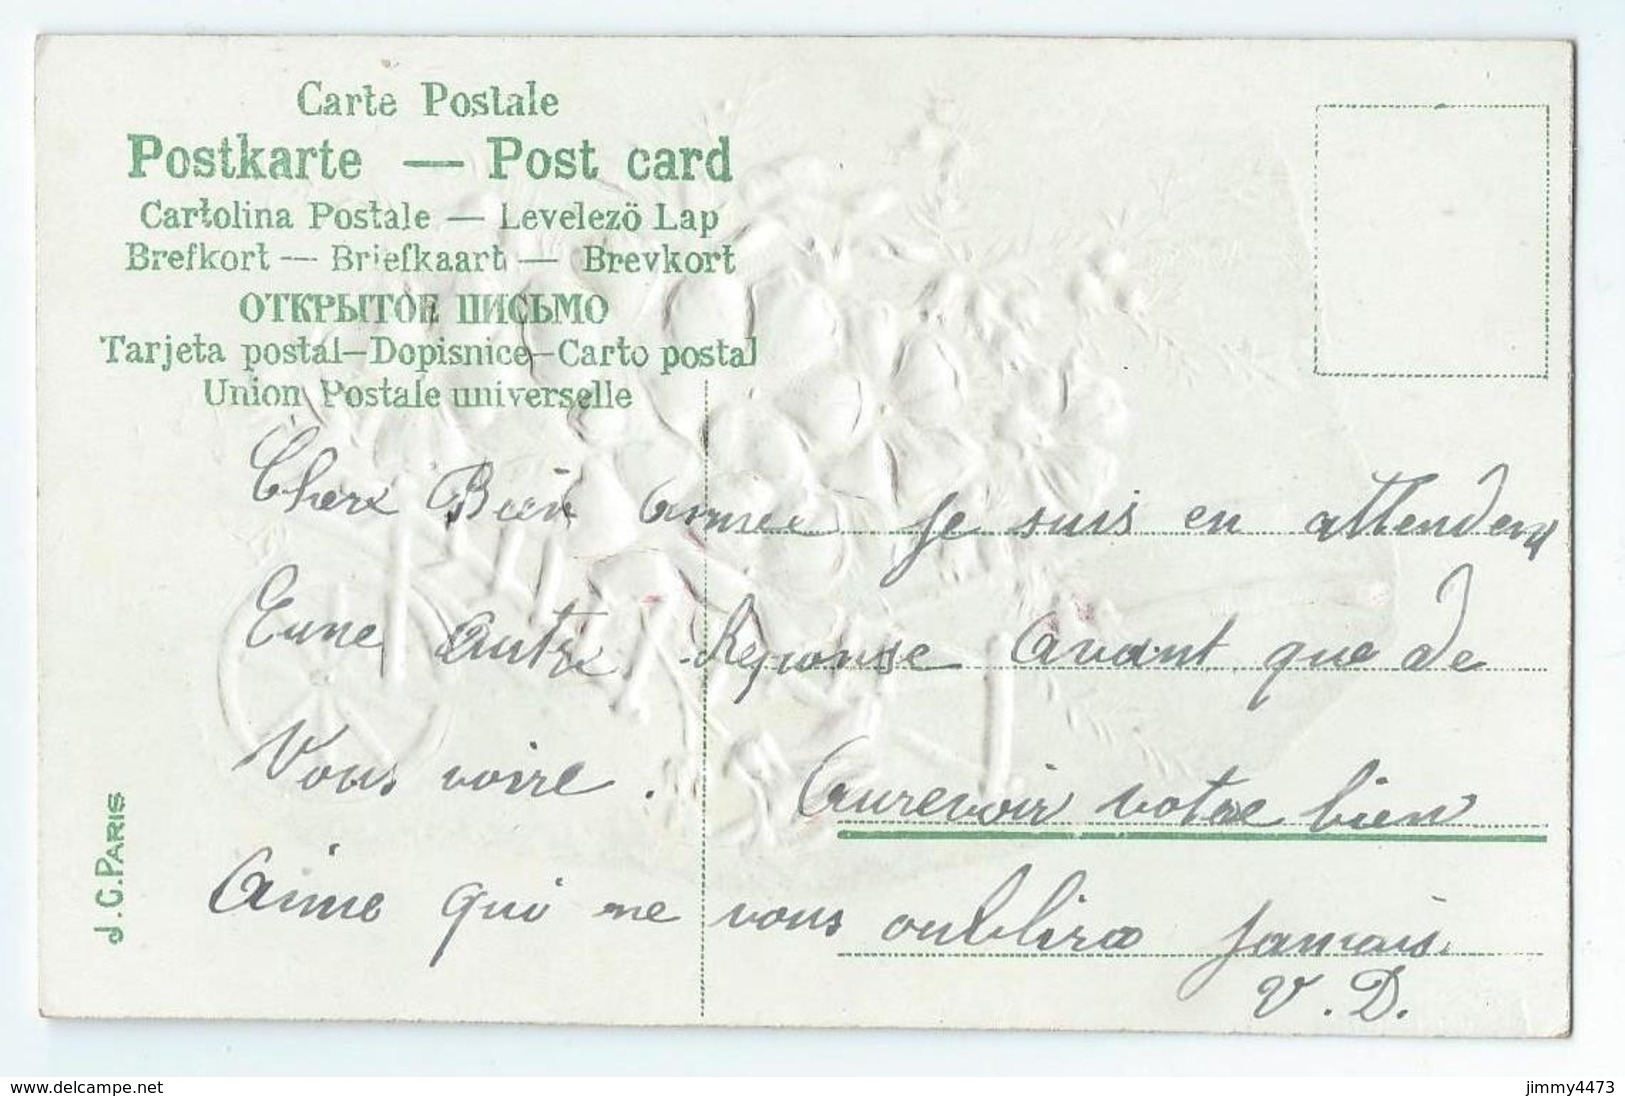 Carte Postale
Postkarte — Post card
Cartolina Postale — Levelezö Lap
Brefkort — Briefkaart — Brevkort
ОТКРЫТОЕ ПИСЬМО
Tarjeta postal-Dopisnice-Carto postal
Union Postale universelle
Chere Bien aimee je suis en attendend
Eune autre Reponse avant que de
Vous voire. Aurevoir votre bien
Aime qui ne vous oublira jamais.
V. D.
J.C.PARIS
www.delcampe.net
jimmy4473